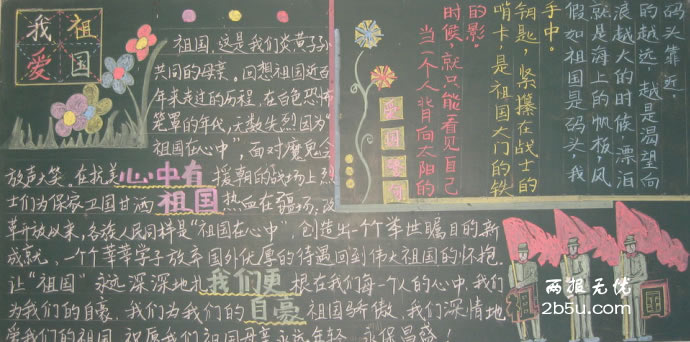 我祖
爱国
祖国，这是我们炎黄子孙
共同的母亲。回想祖国近百
年来走过的历程，在白色恐怖
笼罩的年代，无数先烈因为“
祖国在心中”，面对魔鬼会
放声大笑。在抗美
援朝的战场上，烈
心中有
祖国
士们为保家卫国甘洒
热血在疆场；改
革开放以来，各族人民同样是“祖国在心中”，创造出一个个举世瞩目的新
成就，一个个莘莘学子放弃国外优厚的待遇回到伟大祖国的怀抱。
让“祖国”永远深深地扎
根在我们每一个人的心中，我们
我们更
自豪
为我们的自豪，我们为我们的
祖国骄傲，我们深情地
爱我们的祖国，祝愿我们祖国母亲永远年轻，永保昌盛！
当一个人背向太阳的
时候，就只能看见自己
的影。
哨卡，是祖国大门的铁
钥匙，紧攥在战士的
手中。
假如祖国是码头，我
就是海上的帆板，风
浪越大的时候漂泊
的越远，越是渴望向
码头靠近
祖
国
两报无忧
2b5u.com